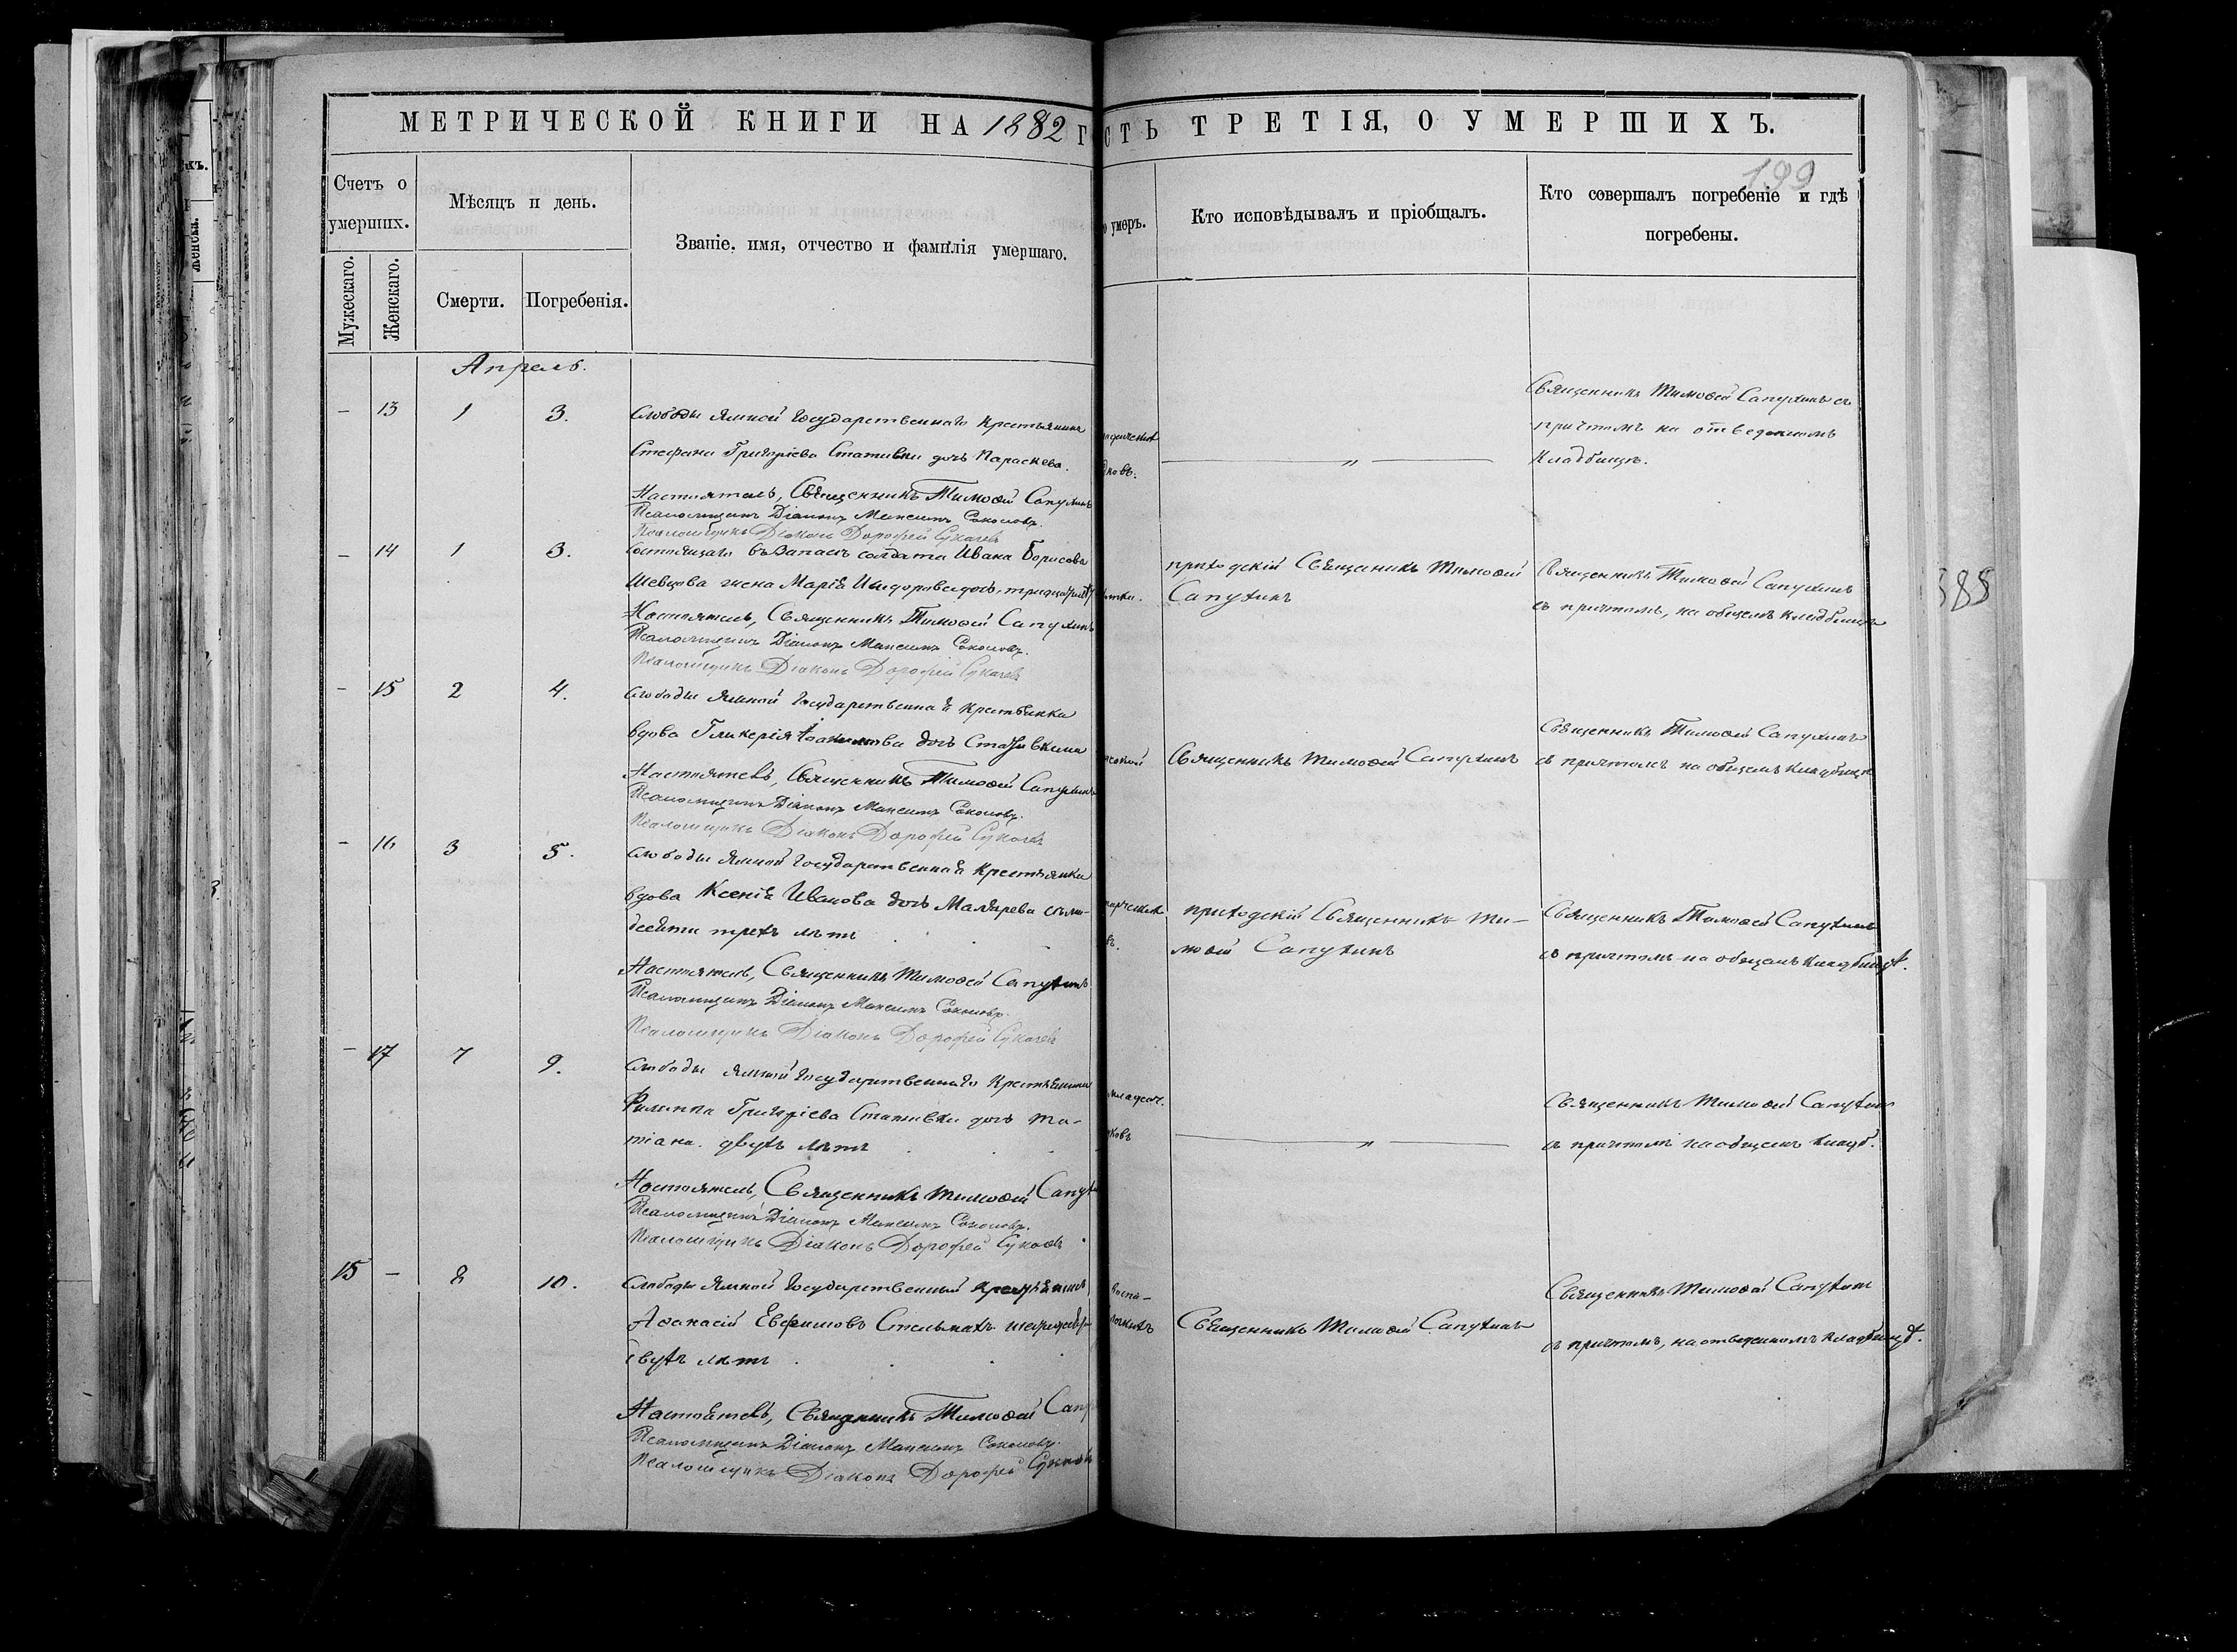 МЕТРИЧЕСКОЙ КНИГИ НА 1882 Г
СТЬ ТРЕТІЯ, О УМЕРШИХЪ.
199
Счетъ о умершихъ.
Мужескаго.
Женскаго.
Мѣсяцъ и день.
Смерти.
Погребенія.
Званіе, имя, отчество и фамилія умершаго.
о умеръ.
Кто исповѣдывалъ и пріобщалъ.
Кто совершалъ погребеніе и гдѣ
погребены.
Апрель.
– 13 1 3.
Слободы Ямной Государственнаго Крестьянина
Стефана Григоріева Стативки дочь Параскева.
Настоятель, Священникъ Тимоѳей Сапухинъ
Псаломщикъ Діаконъ Максимъ Соколовъ.
Псаломщикъ Діаконъ Дорофей Сукачевъ
„
Священникъ Тимоѳей Сапухинъ съ
причтомъ на отведенномъ
Кладбищѣ.
– 14 1 3.
Состоящаго въ Запасѣ солдата Ивана Борисова
Шевцова жена Марія
Настоятель, Священникъ Тимоѳей Сапухинъ
Псаломщикъ Діаконъ Максимъ Соколовъ.
Псаломщикъ Діаконъ Дорофей Сукачевъ
приходскій Священикъ Тимоѳей
Сапухинъ
Священникъ Тимоѳей Сапухинъ
съ причтомъ, на общемъ кладбищѣ
– 15 2 4.
Слободы Ямной Государственная Крестьянка
вдова Гликерія дочь
Настоятель, Священникъ Тимоѳей Сапухинъ
Псаломщикъ Діаконъ Максимъ Соколовъ.
Псаломщикъ Діаконъ Дорофей Сукачевъ
Священникъ Тимоѳей Сапухинъ
Священникъ Тимоѳей Сапухинъ
съ причтомъ на общемъ кладбищѣ
– 16 3 5.
Слободы Ямной Государственная Крестьянка
вдова Ксенія Иванова дочь Малярева семи-
десяти трехъ лѣтъ
Настоятель, Священникъ Тимоѳей Сапухинъ
Псаломщикъ Діаконъ Максимъ Соколовъ.
Псаломщикъ Діаконъ Дорофей Сукачевъ
приходскій Священникъ Ти-
моѳей Сапухинъ
Священникъ Тимоѳей Сапухинъ
съ причтомъ на общемъ Кладбищѣ.
– 17 7 9.
Слободы Ямной Государственнаго Крестьянина
Филиппа Григоріева Стативки дочь Та-
тіана. двухъ лѣтъ
Настоятель, Священникъ Тимоѳей Сапух
Псаломщикъ Діаконъ Максимъ Соколовъ.
Псаломщикъ Діаконъ Дорофей Сукачевъ
„
Священникъ Тимоѳей Сапухинъ
съ причтомъ на общемъ кладб.
15 – 8 10.
Слободы Ямной Государственный Крестьянинъ
Аѳанасій Евфимовъ Стельмахъ
двухъ лѣтъ
Настоятель, Священникъ Тимоѳей Сапу
Псаломщикъ Діаконъ Максимъ Соколовъ.
Псаломщикъ Діаконъ Дорофей Сукачевъ
Священникъ Тимоѳей Сапухинъ
Священникъ Тимоѳей Сапухинъ
съ причтомъ, на отведенномъ кладбищѣ.